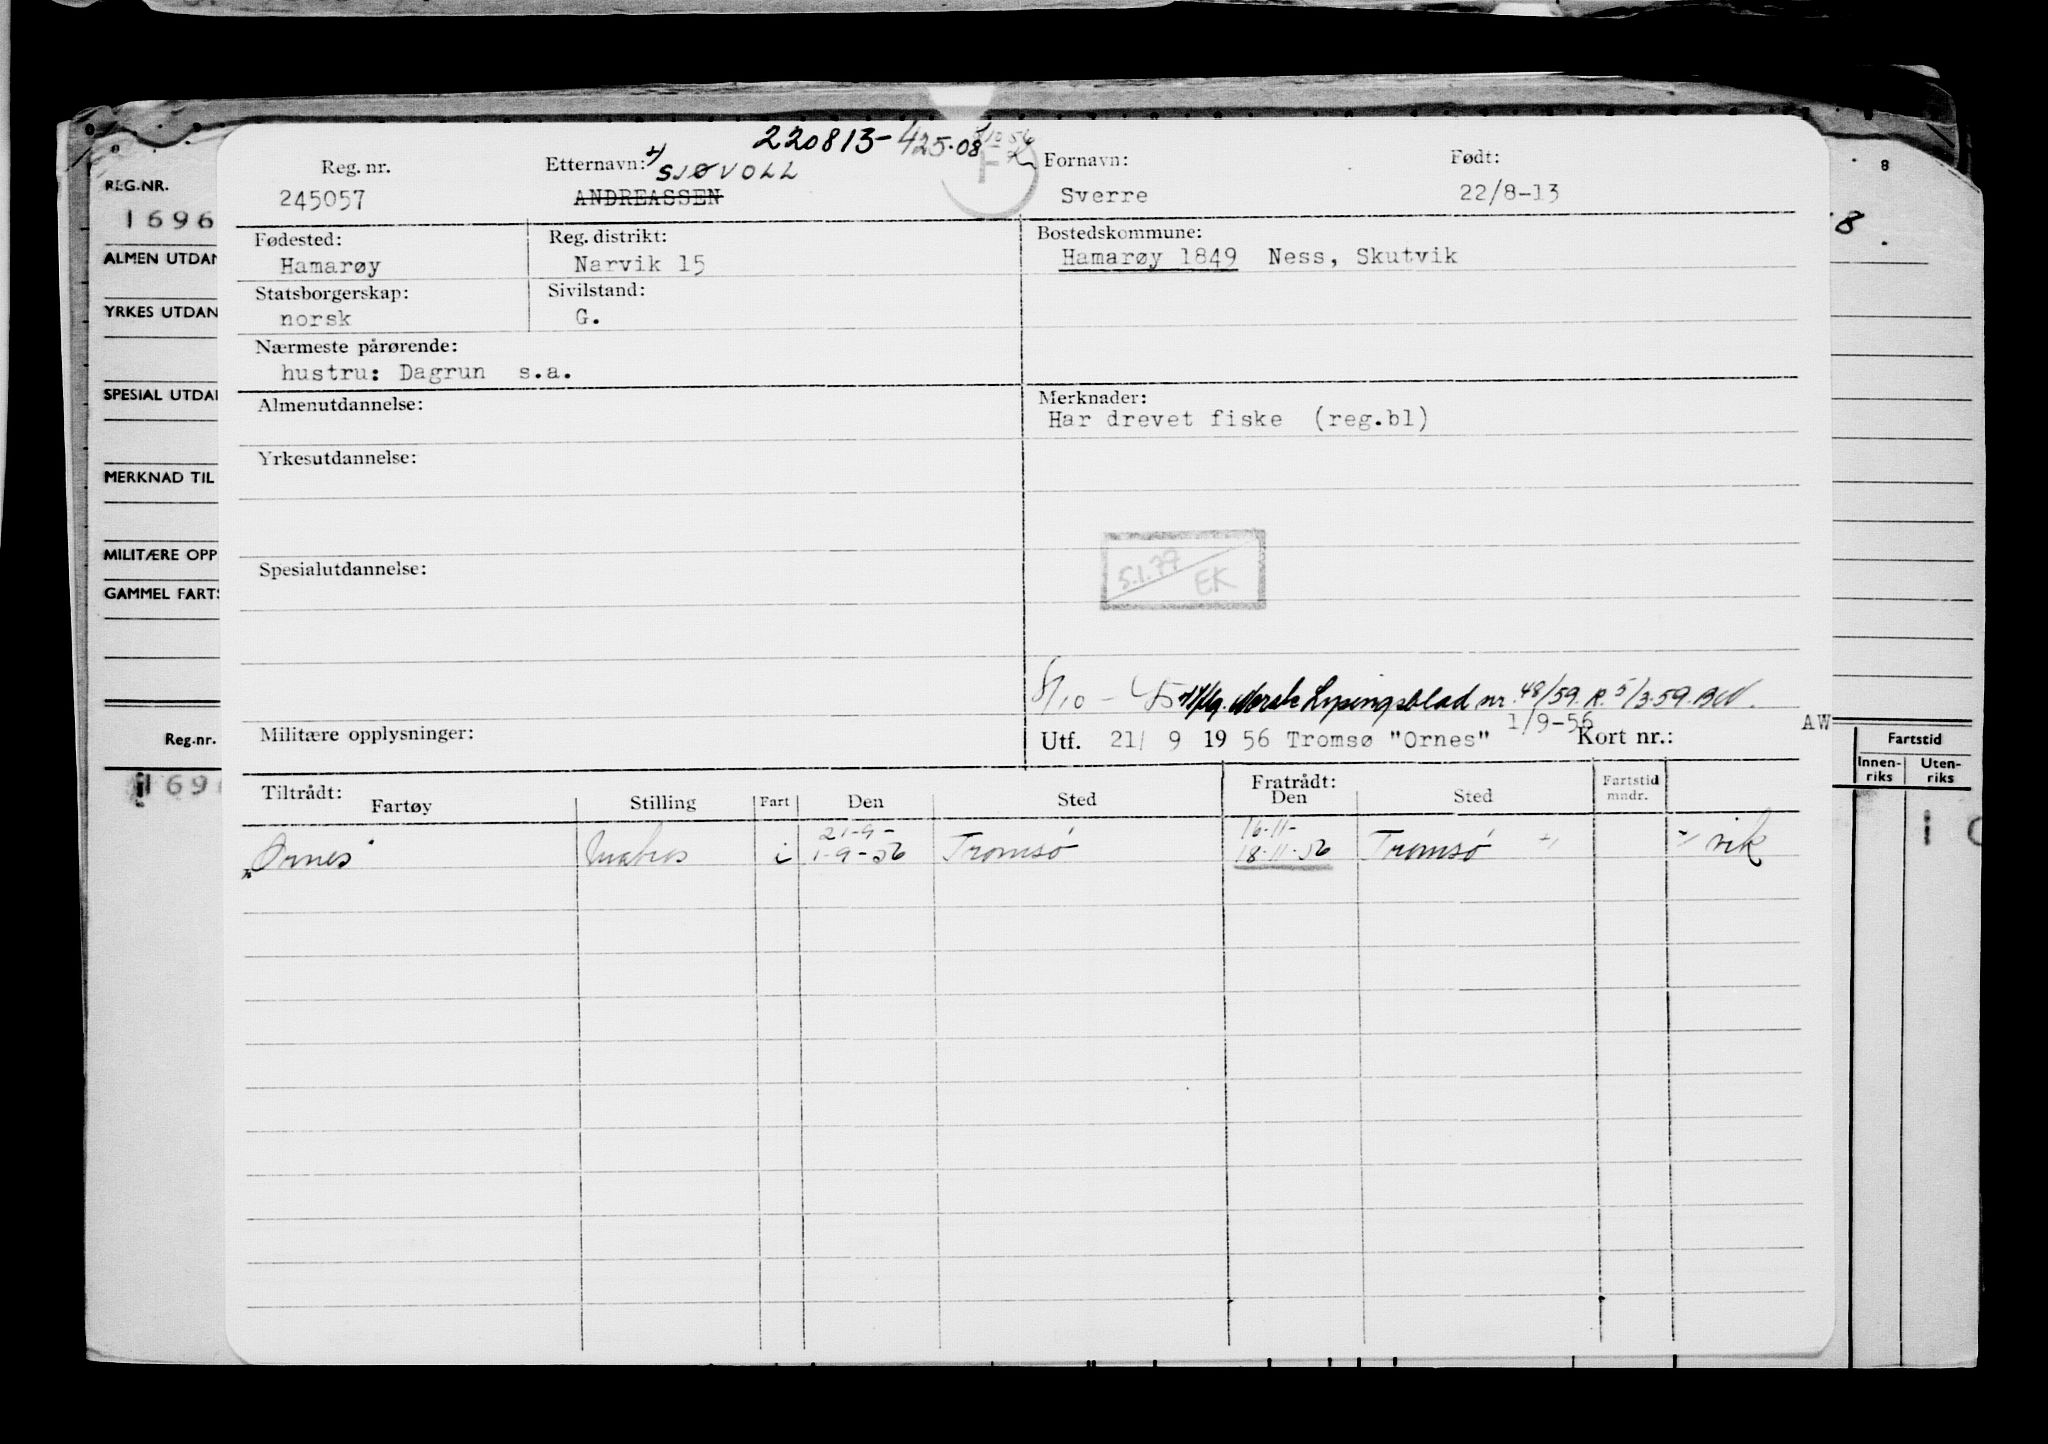 220813-425.08
8/10 56
Reg. nr. Etternavn: Fornavn: Født:
+) SJØVOLL
245057 ANDREASSEN Sverre 22/8-13
F
Fødested: Reg. distrikt: Bostedskommune:
Hamarøy Narvik 15 Hamarøy 1849 Ness, Skutvik
Statsborgerskap: Sivilstand:
norsk G.
Nærmeste pårørende:
hustru: Dagrun s.a.
Almenutdannelse: Merknader:
Har drevet fiske (reg.bl)
Yrkesutdannelse:
Spesialutdannelse:
5.1.77 EK
8/10 - Norsk Lysingsblad nr. 48/59. R. 5/3-59. BW.
1/9-56 AW
Militære opplysninger: Utf. 21/ 9 19 56 Tromsø "Ornes" Kort nr.:
Tiltrådt: Fratrådt: Fartstid
Fartøy Stilling Fart Den Sted Den Sted mndr.
21-9- 16-11-
Ornes i 1-9-56 Tromsø 18-11-56 Tromsø +) vik
REG.NR.
1696
ALMEN UTDAN
YRKES UTDAN
SPESIAL UTDAN
MERKNAD TIL
MILITÆRE OPP
GAMMEL FARTS
Reg.nr.
1696
8
8.
Fartstid
Innen-riks Uten-riks
1 0